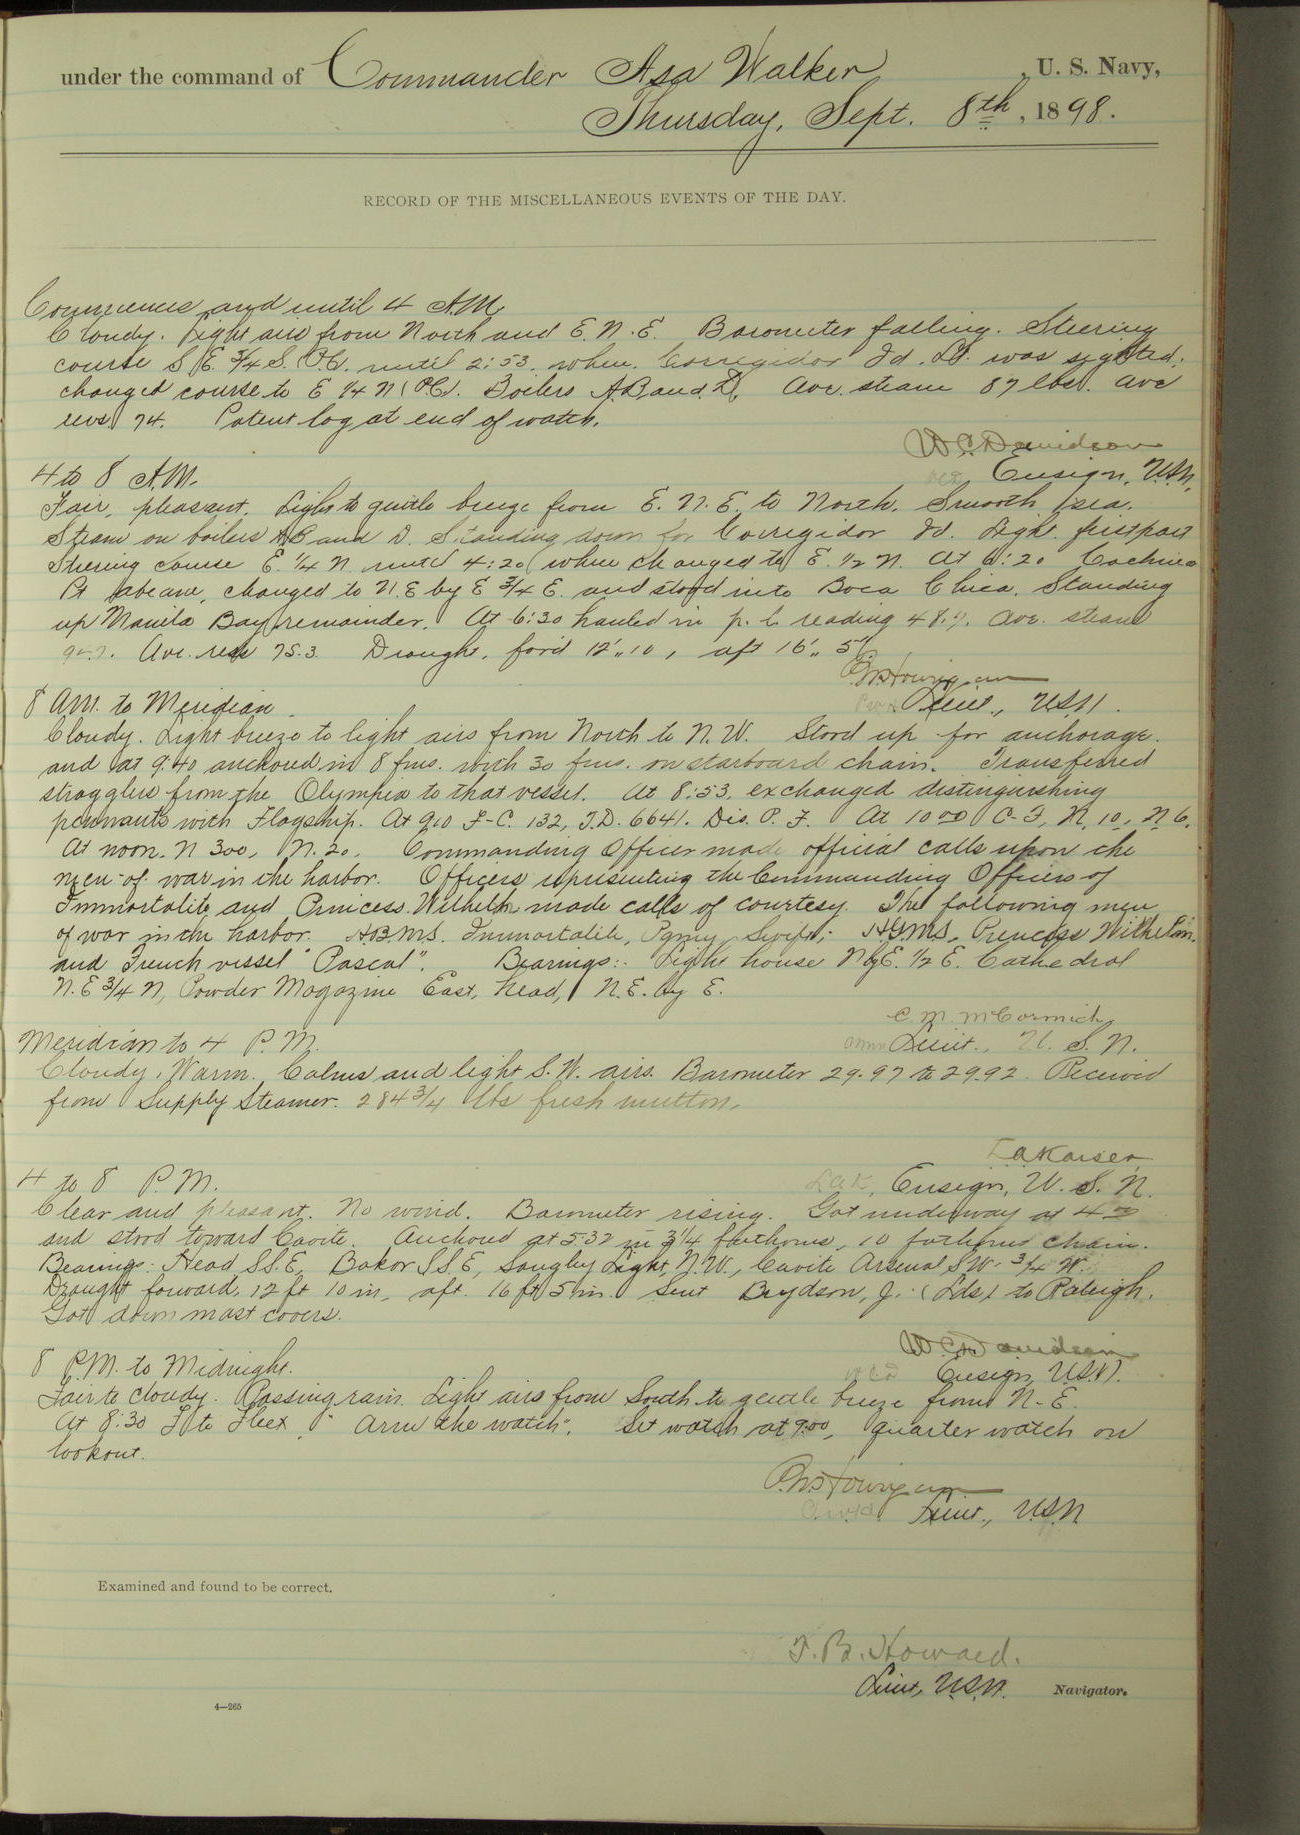 under the command of Commander Asa Walker, U. S. Navy,
Thursday, Sept. 8th, 1898.
RECORD OF THE MISCELLANEOUS EVENTS OF THE DAY.
Commences and until 4 A.M.
Cloudy. Light airs from North and E.N.E. Barometer falling. Steering
course S.E. 3/4 S. (P.C.) until 2:53, when Corregidor Id. Lt. was sighted,
changed course to E 1/4 N (P.C.). Boilers A. B and D. Ave. steam 87 lbs. Ave
revs. 74. Patent log at end of watch.
W. C. Davidson
Ensign, U.S.N.
4 to 8 A.M.
Fair, pleasant. Light to gentle breeze from E. N. E. to North. Smooth sea.
Steam on boilers A B and D. Standing down for Corregidor Id. Light first part
Steering course E. 1/4 N. until 4:20 when changed to E. 1/2 N. At 6:20 Cochinos
Pt abeam, changed to N.E by E 3/4 E. and stood into Boca Chica. Standing
up Manila Bay remainder. At 6:30 hauled in p. l. reading 48.7. Ave. steam
Ave. revs 75.3 Draught, for'd 12'" 10, aft 16'" 5"
Lieut., U.S.N.
8 AM. to Meridian.
Cloudy. Light breeze to light airs from North to N. W. Stood up for anchorage.
and at 9:40 anchored in 8 fms. with 30 fms. on starboard chain. Transferred
stragglers from the Olympia to that vessel. At 8:53 exchanged distinguishing
pennants with Flagship. At 910 F-C. 132, T.D. 6641. Dis. P. F. At 10 00 C-F, N. 10, N 6.
At noon. N 300, N. 20. Commanding Officer made official calls upon the
men-of-war in the harbor. Officers representing the Commanding Officers of
Immortalite and Princess Wilhelm made calls of courtesy. The following men
of war in the harbor. H.B.M.S. Immortalite, Pigmy, Swift; H.G.M.S. Princess Wilhelm.
and French vessel "Pascal". Bearings:- Light house N by E. 1/2 E. Cathedral
N. E 3/4 N, Powder Magazine East, head, N.E. by E.
C. M. McCormick
Lieut., U. S. N.
Meridian to 4 P. M.
Cloudy, Warm. Calms and light S. W. airs. Barometer 29.97 to 29.92. Received
from Supply Steamer. 284 3/4 lbs fresh mutton.
L A Kaiser
L A K, Ensign, U. S. N.
4 to 8 P. M.
Clear and pleasant. No wind. Barometer rising. Got underway at 4 00
and stood toward Cavite. Anchored at 5 32 in 3 1/4 fathoms, 10 fathoms chain.
Bearings: Head S.S.E, Bakor S S E, Sangley Light, N.W., Cavite Arsenal S.W. 3/4 W.
Draught forward, 12 ft 10 in, aft. 16 ft 5 in. Sent Brydson, J. (Lds) to Raleigh.
Got down mast covers.
W. C. Davidson
W C D Ensign, U.S.N.
8 P.M. to Midnight.
Fair to cloudy. Passing rain. Light airs from South to gentle breeze from N-E.
At 8:30 F. to Fleet, "Arm the watch". Set watch at 9:00, quarter watch on
lookout.
P. W. Hourigan
P.W.H. Lieut., U.S.N.
Examined and found to be correct.
T. B. Howard.
Lieut, U.S.N. Navigator.
4—265